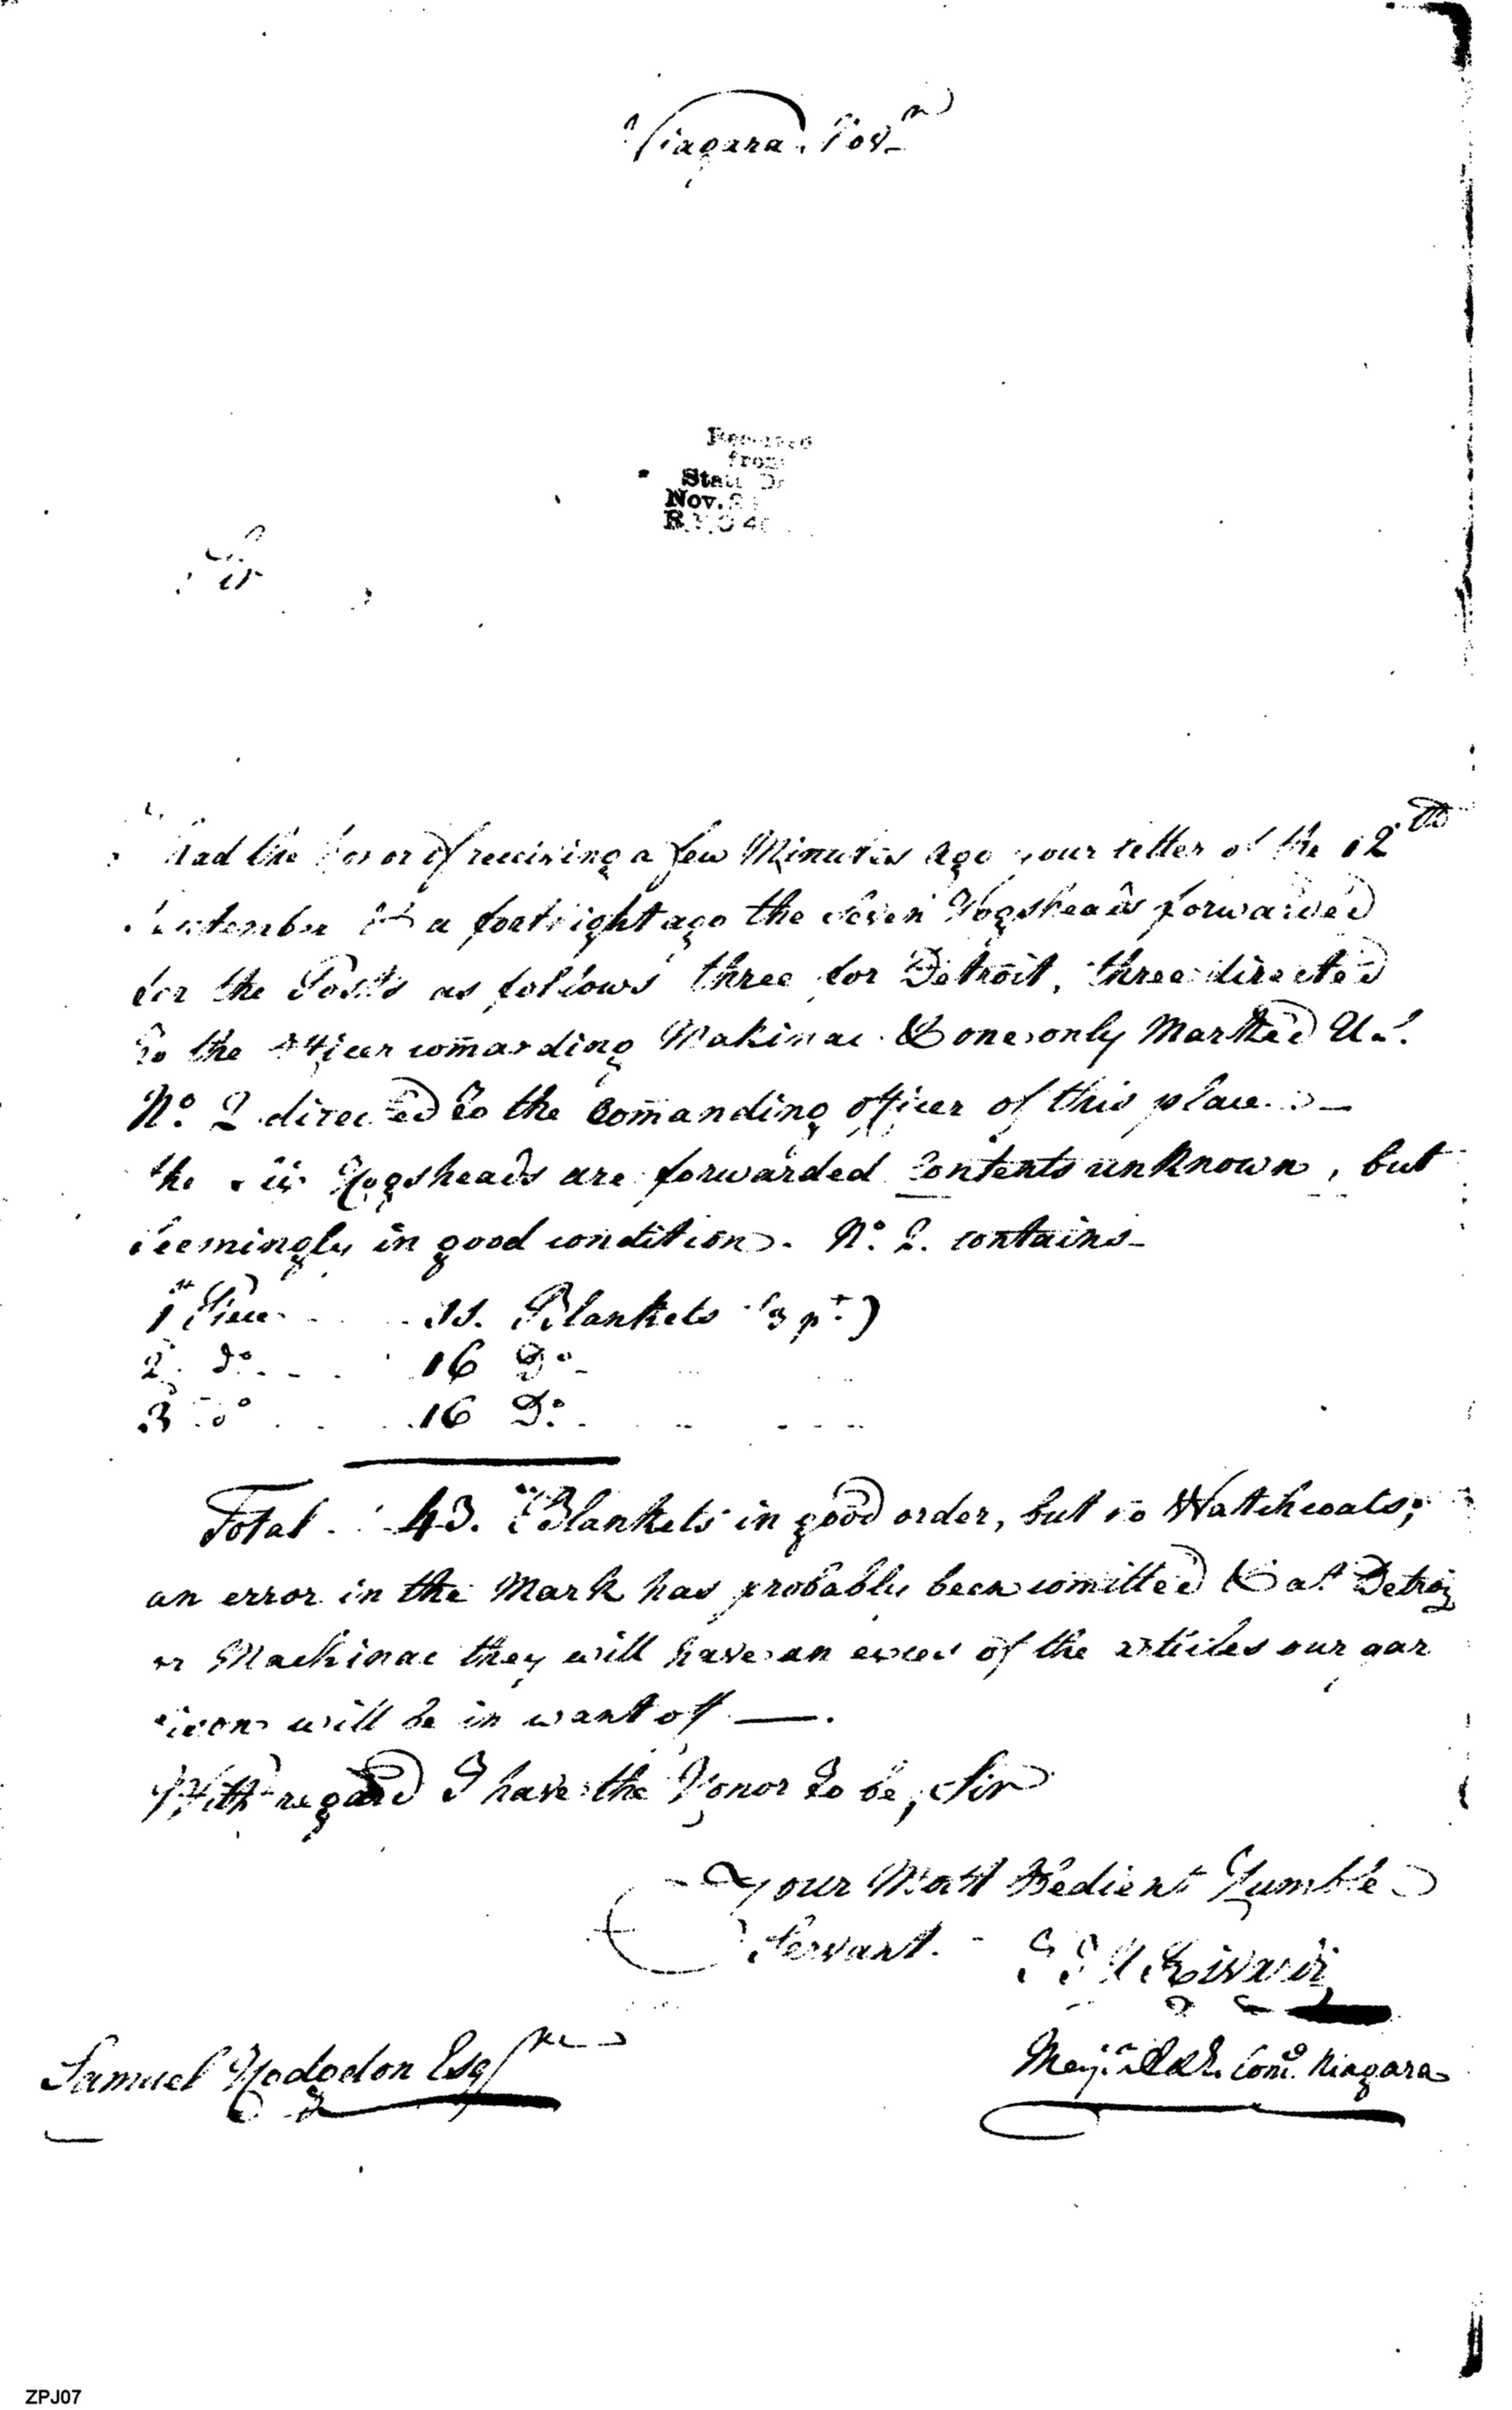 Niagara. Nov
Received
from
State
Nov.
R
Sir
had the honor of receiving a few Minutes ago your letter of the 12th
September & a fortnight ago the Seven Hogsheads forwarded
for the Posts as follows three for Detroit, three directed
to the officer com̄anding Makinac & one only Marked
No. 2 directed to the Com̄anding officer of this place. —
the six Hogsheads are forwarded Contents unknown, but
seemingly in good condition. No. 2. contains
1st Piece 11. Blankets (3 pt.)
2 do 16 Do
3 do 16 Do.
Total 43. Blankets in good order, but no Watchcoats;
an error in the Mark has probably been com̄itted & at Detroit
or Mackinac they will have an exces of the articles our gar
ison will be in want of —.
With regard I have the Honor to be, Sir
Your Most Obedient Humble
Servant.
Rivardi
Majr. Comd. Niagara
Samuel Hodgdon Esqr
ZPJ07